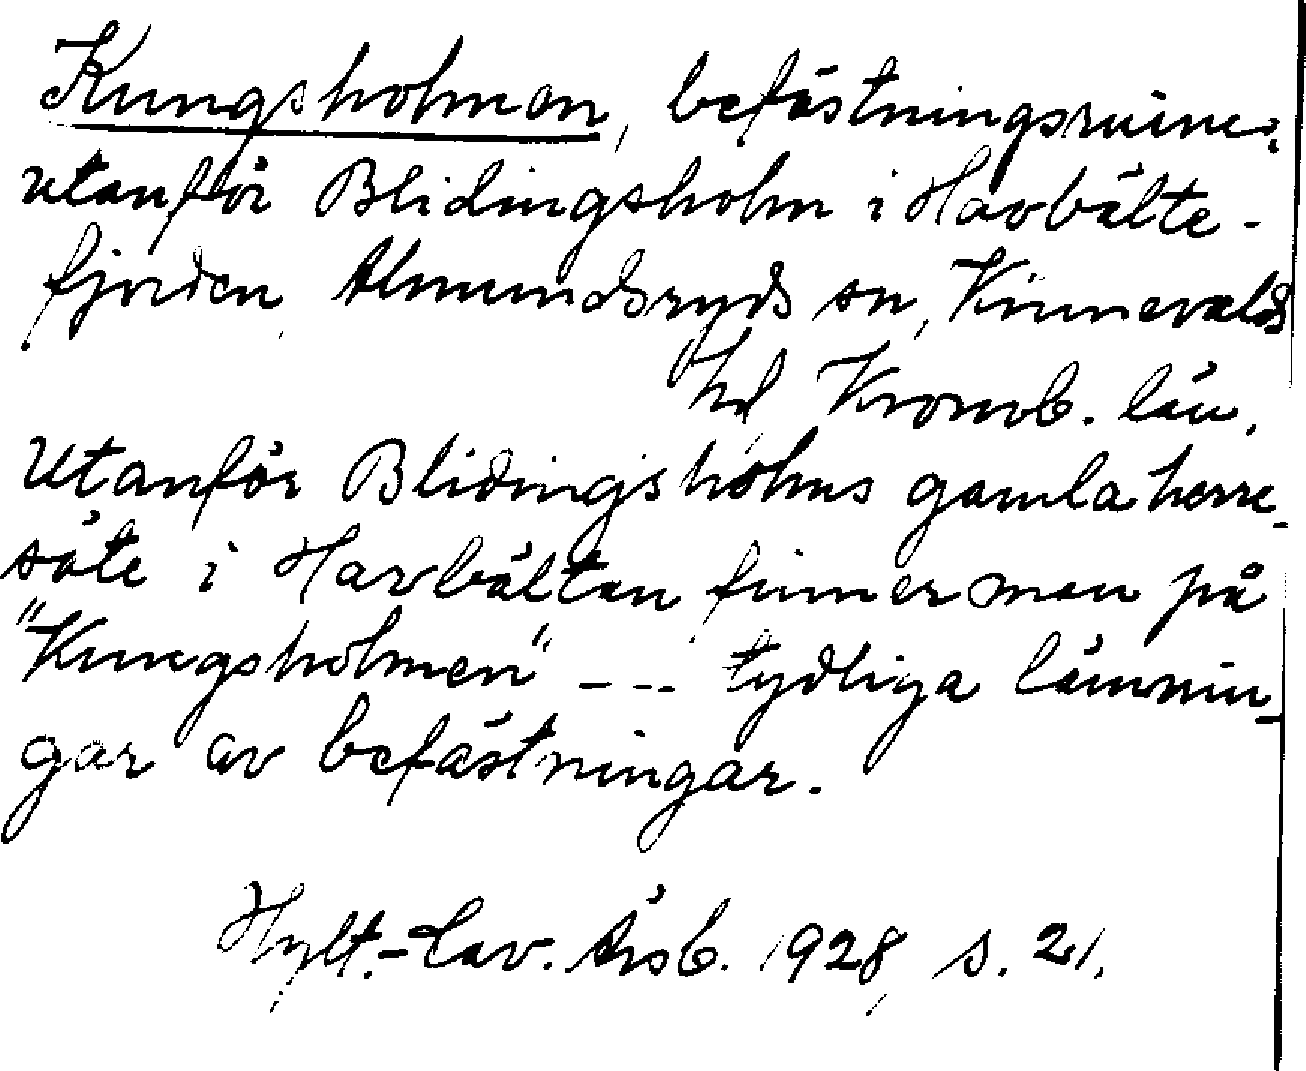 Kungsholmen, befästningsruiner
utanför Blidingsholm i Havbälte-
fjorden, Almundsryds sn, Kinnevalds
hd, Kronob. län.
Utanför Blidingsholms gamla herre-
säte i Havbältan finner man på
"Kungsholmen" --- tydliga lämnin-
gar av befästningar.
Hylt.-Cav. Årsb. 1928, s. 21.